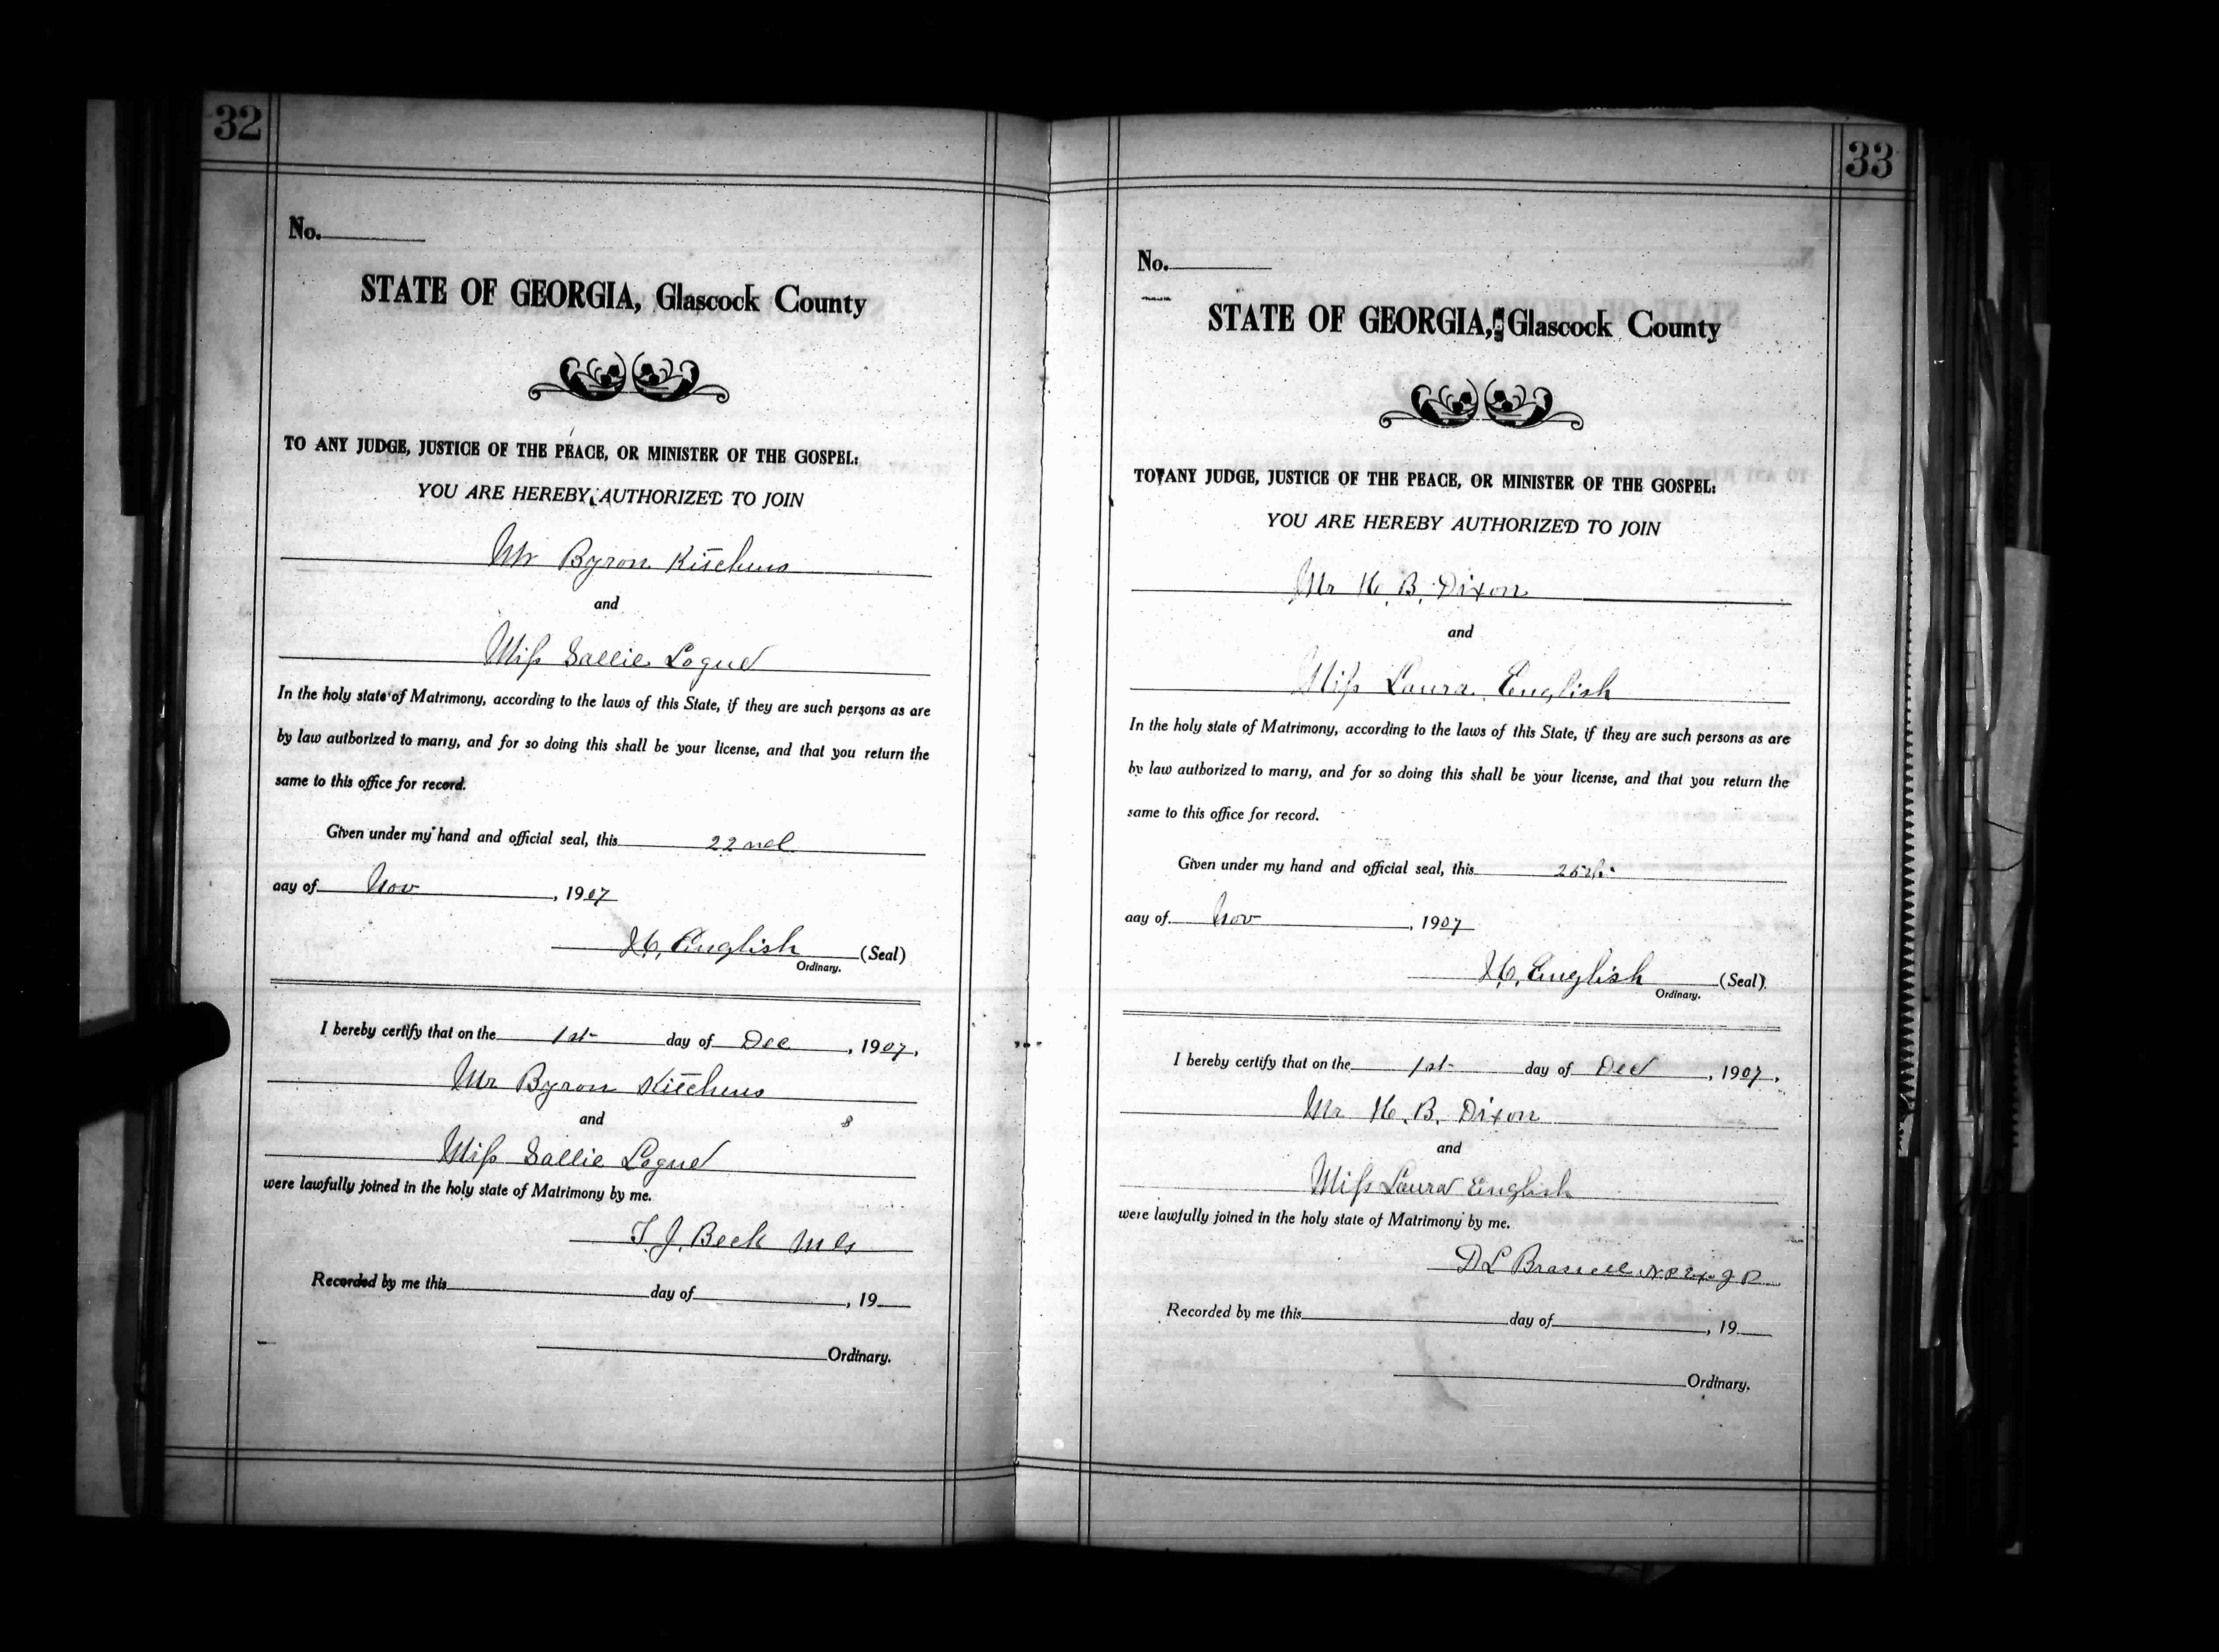 32
No.
STATE OF GEORGIA, Glascock County
TO ANY JUDGE, JUSTICE OF THE PEACE, OR MINISTER OF THE GOSPEL:
YOU ARE HEREBY AUTHORIZED TO JOIN
Mr Byron Kitchens
and
Miss Sallie Logue
In the holy state of Matrimony, according to the laws of this State, if they are such persons as are
by law authorized to marry, and for so doing this shall be your license, and that you return the
same to this office for record.
Given under my hand and official seal, this 22nd
day of Nov, 1907
English (Seal)
Ordinary.
I hereby certify that on the 1st day of Dec, 1907,
Mr Byron Kitchens
and
Miss Sallie Logue
were lawfully joined in the holy state of Matrimony by me.
T. J. Beck
Recorded by me this day of, 19
Ordinary.
33
No.
STATE OF GEORGIA, Glascock County
TO ANY JUDGE, JUSTICE OF THE PEACE, OR MINISTER OF THE GOSPEL:
YOU ARE HEREBY AUTHORIZED TO JOIN
Mr H. B. Dixon
and
Miss Laura English
In the holy state of Matrimony, according to the laws of this State, if they are such persons as are
by law authorized to marry, and for so doing this shall be your license, and that you return the
same to this office for record.
Given under my hand and official seal, this
day of Nov, 1907
English (Seal).
Ordinary.
I hereby certify that on the 1st day of Dec, 1907,
Mr H. B. Dixon
and
Miss Laura English
were lawfully joined in the holy state of Matrimony by me.
D L
Recorded by me this day of, 19
Ordinary.